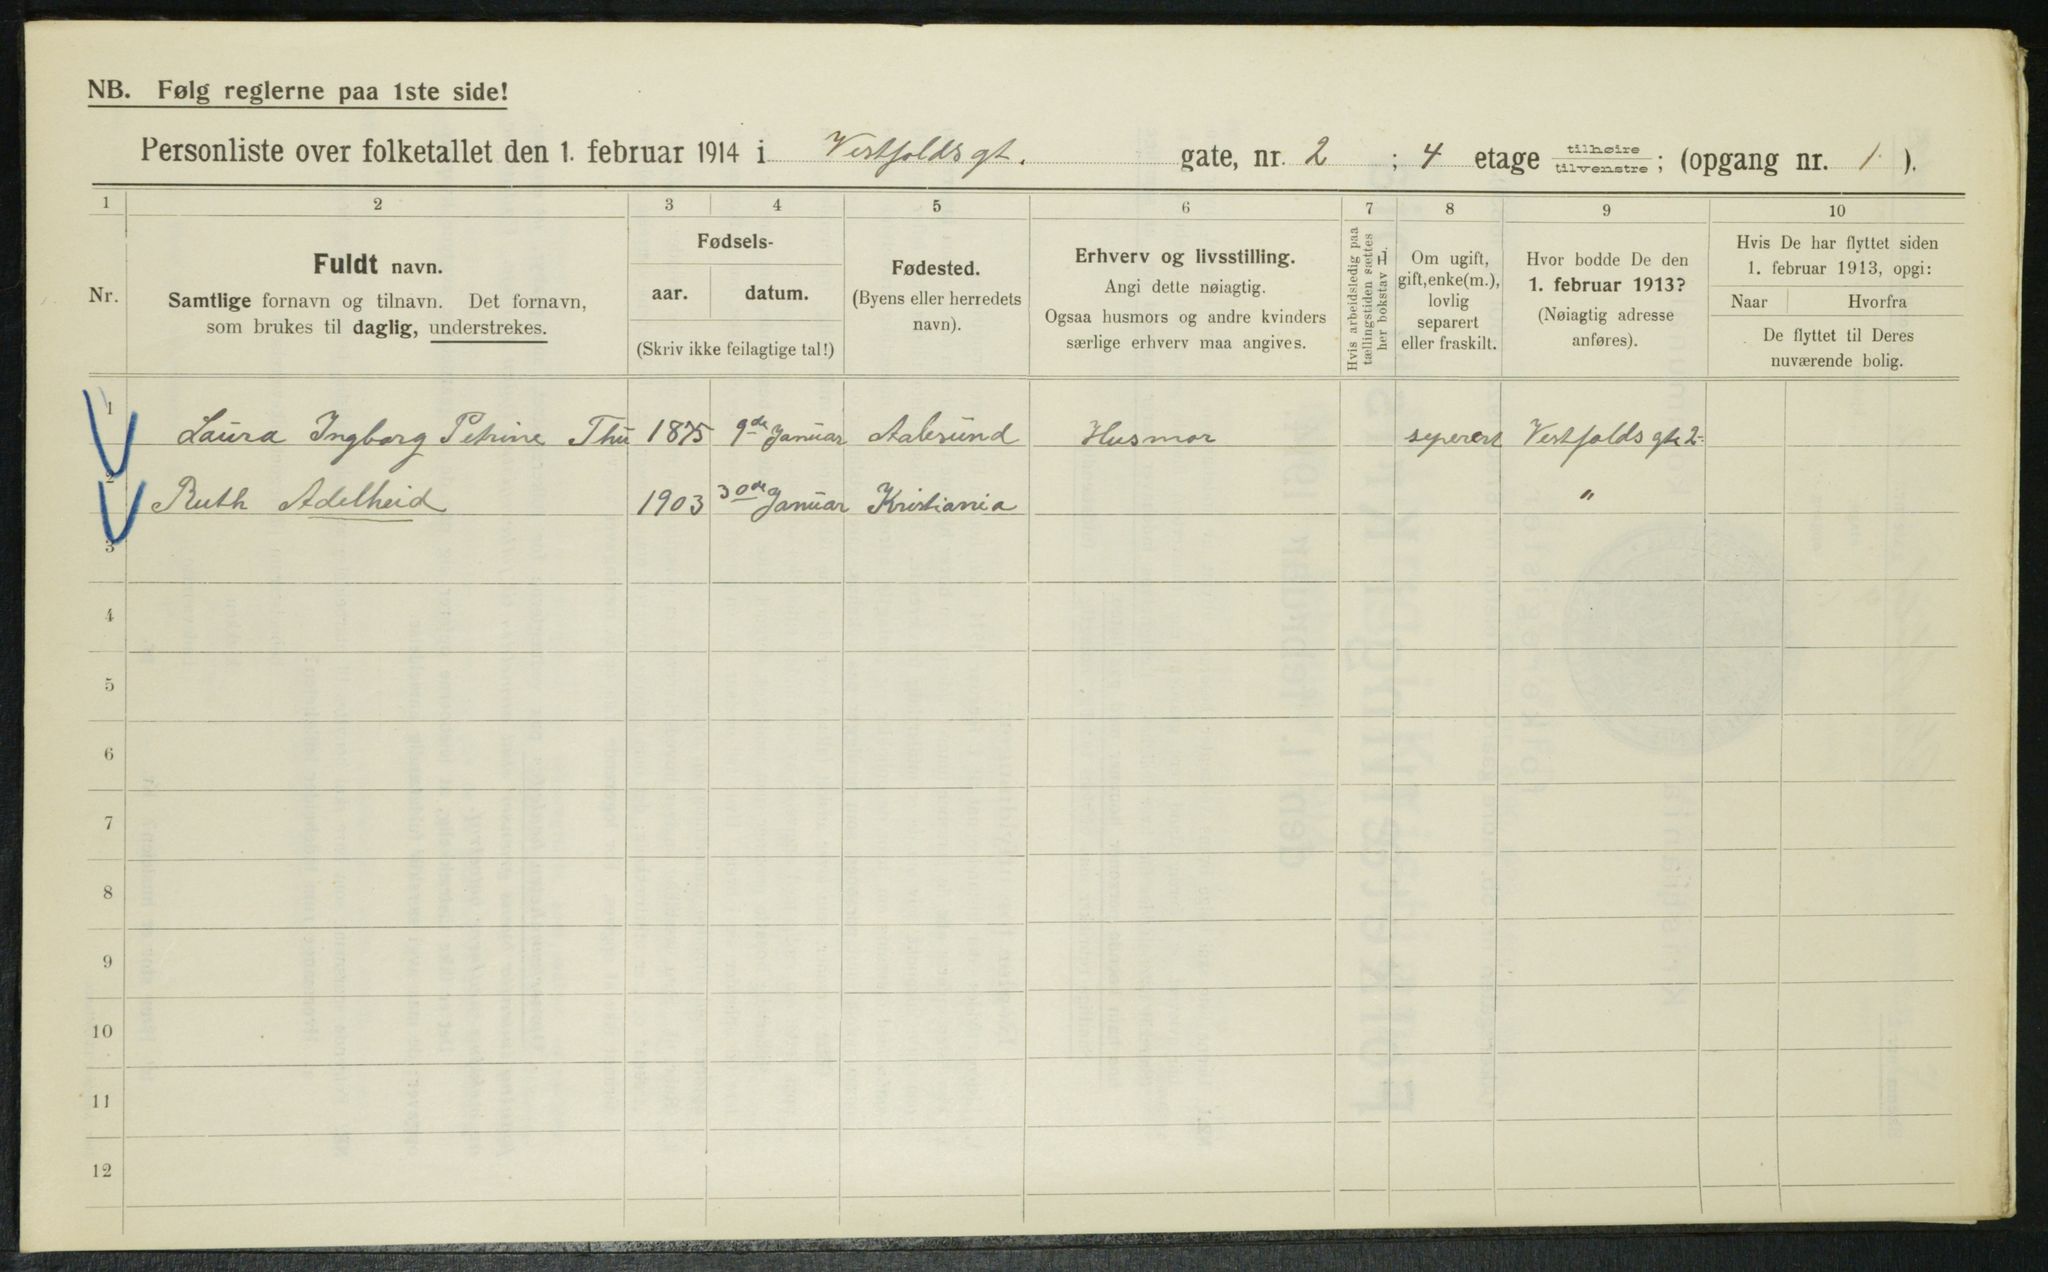 NB. Følg reglerne paa 1ste side!
Personliste over folketallet den 1. februar 1914 i Vestfoldsgt. gate, nr. 2 ; 4 etage tilhøire/tilvenstre; (opgang nr. 1 ).
1 2 3 4 5 6 7 8 9 10
Nr.
Fuldt navn.
Samtlige fornavn og tilnavn. Det fornavn,
som brukes til daglig, understrekes.
Fødsels-
aar. datum.
(Skriv ikke feilagtige tal!)
Fødested.
(Byens eller herredets
navn).
Erhverv og livsstilling.
Angi dette nøiagtig.
Ogsaa husmors og andre kvinders
særlige erhverv maa angives.
Hvis arbeidsledig paa
tællingstiden sættes
her bokstav L.
Om ugift,
gift, enke(m.),
lovlig
separert
eller fraskilt.
Hvor bodde De den
1. februar 1913?
(Nøiagtig adresse
anføres).
Hvis De har flyttet siden
1. februar 1913, opgi:
Naar Hvorfra
De flyttet til Deres
nuværende bolig.
1 Laura Ingborg Petrine Thu 1875 9de Januar Aalesund Husmor seperert Vestfoldsgt. 2
2 Ruth Adelheid 1903 30de Januar Kristiania "
3
4
5
6
7
8
9
10
11
12